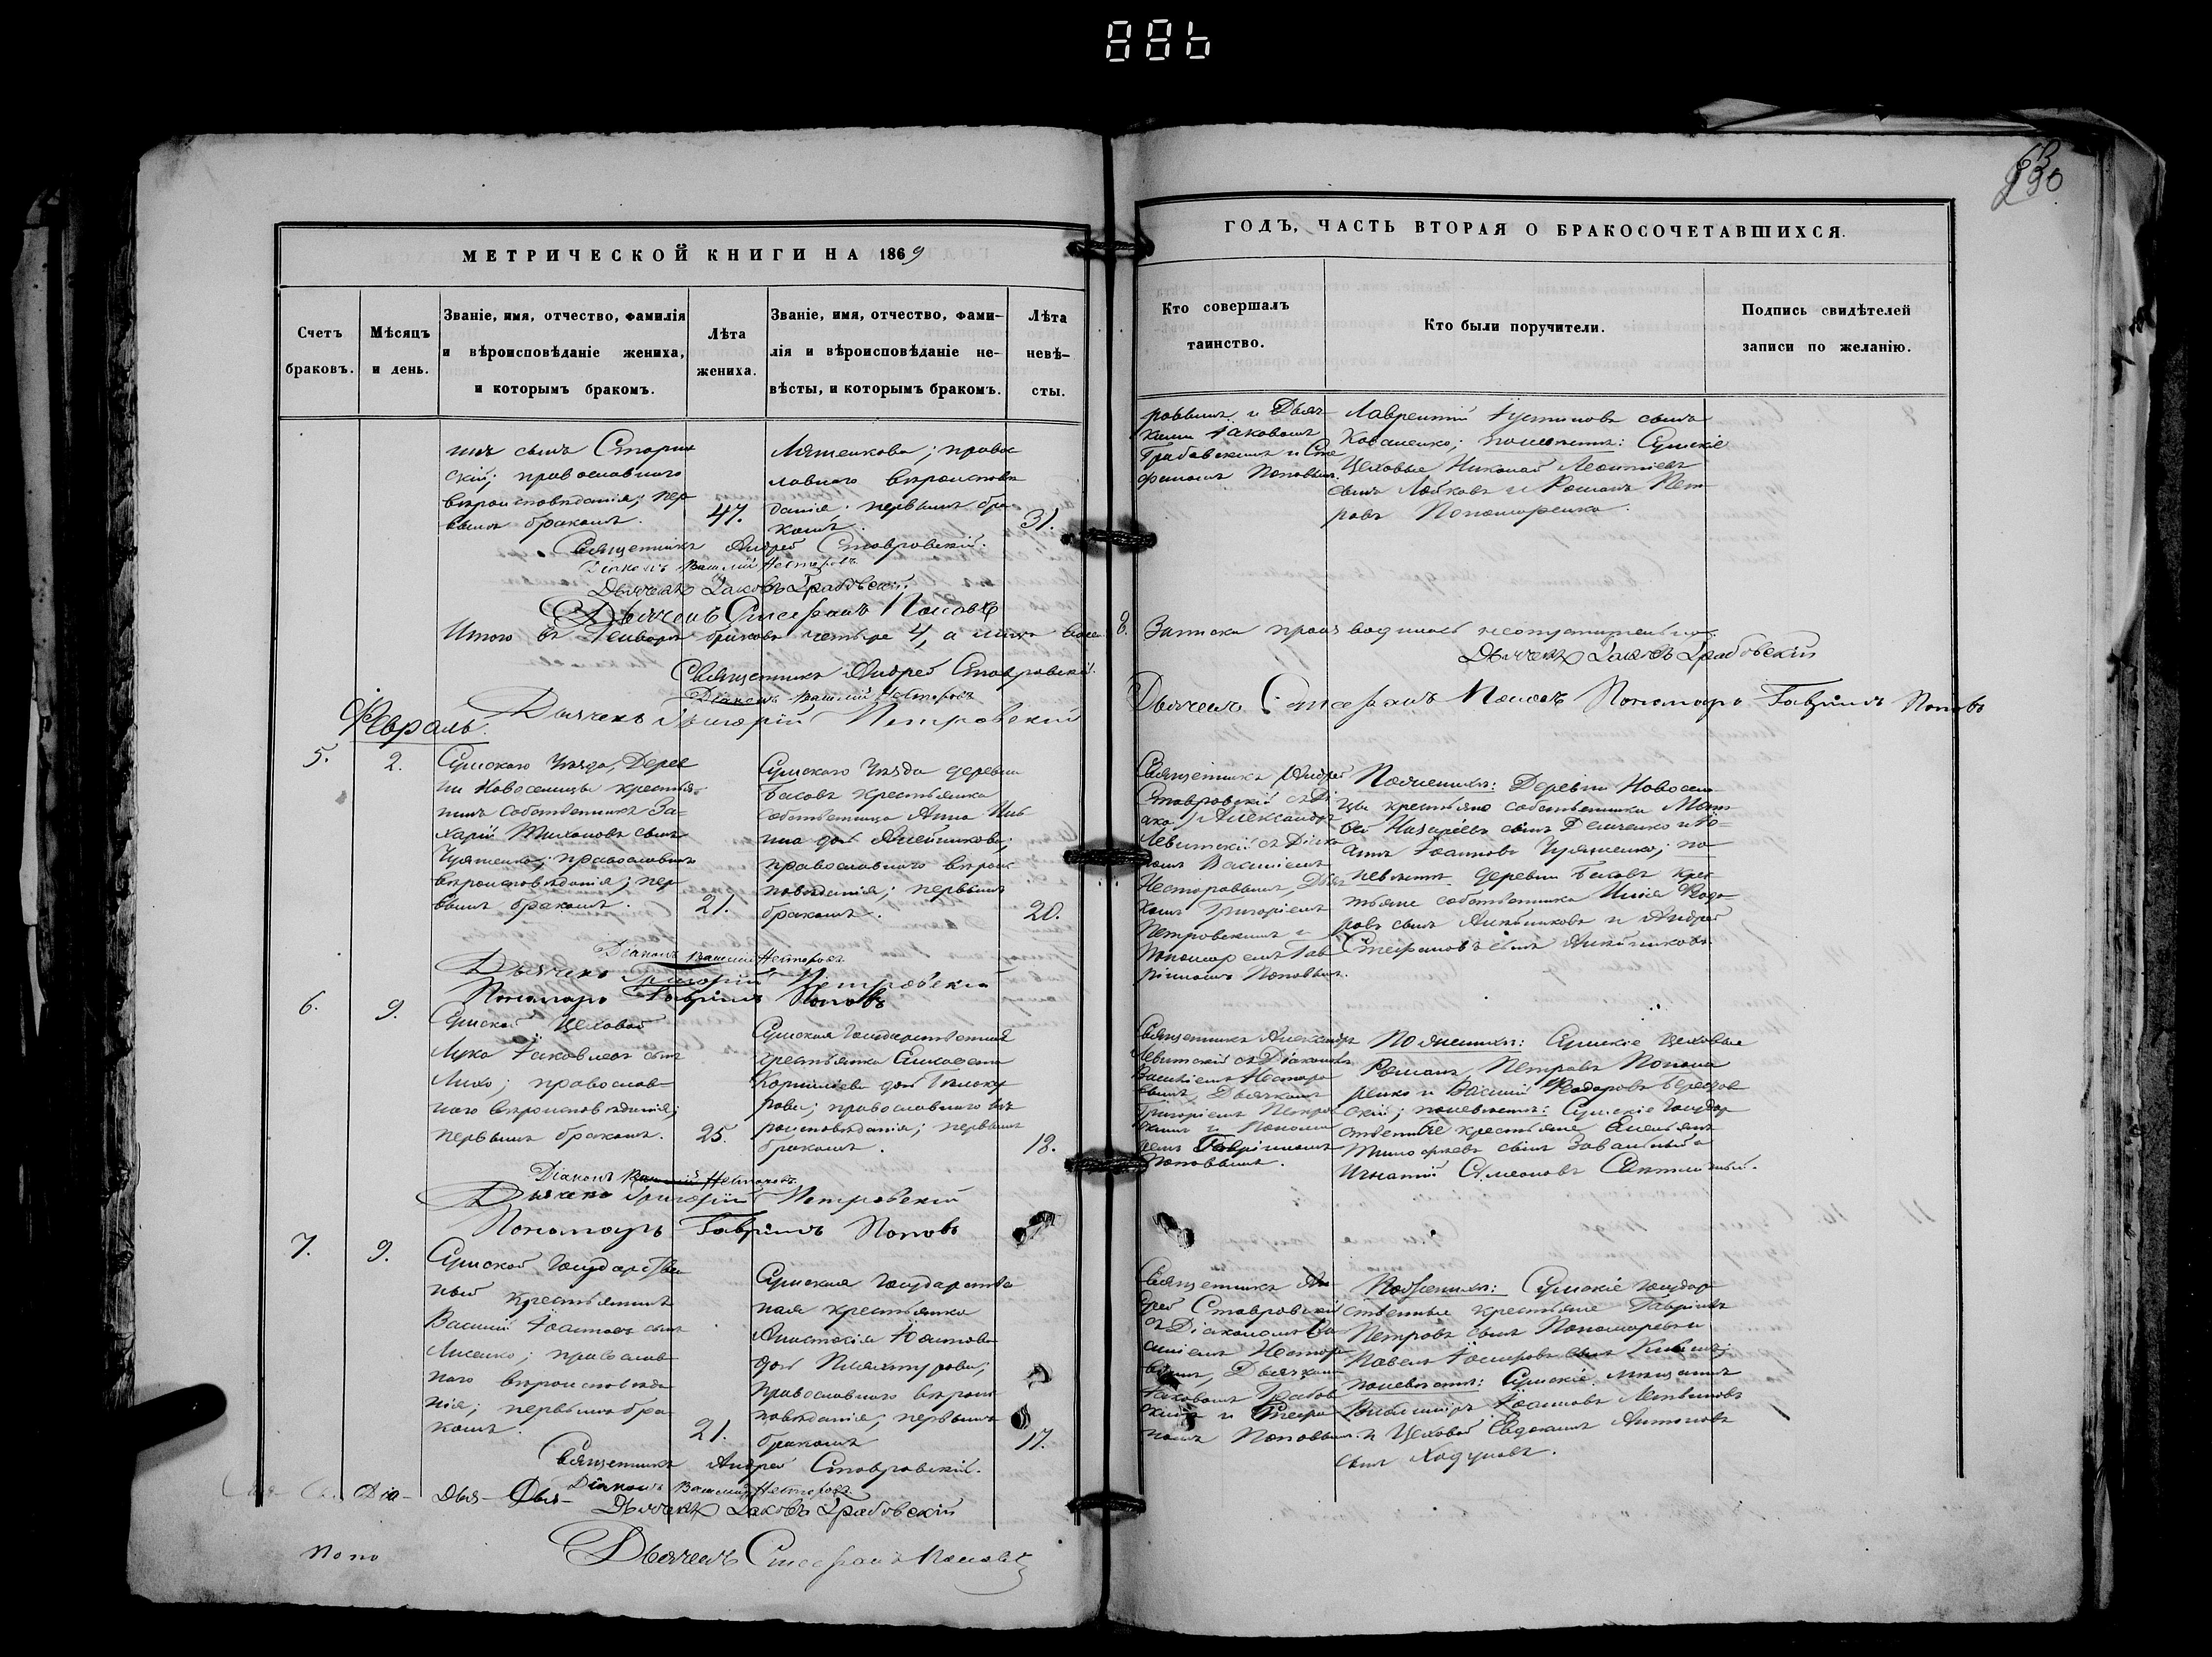 630
МЕТРИЧЕСКОЙ КНИГИ НА 1869
ГОДЪ, ЧАСТЬ ВТОРАЯ О БРАКОСОЧЕТАВШИХСЯ.
Счетъ
браковъ.
Мѣсяцъ
и день.
Званіе, имя, отчество, фамилія
и вѣроисповѣданіе жениха,
и которымъ бракомъ.
Лѣта
жениха.
Званіе, имя, отчество, фами-
лія и вѣроисповѣданіе не-
вѣсты, и которымъ бракомъ.
Лѣта
невѣ-
сты.
Кто совершалъ
таинство.
Кто были поручители.
Подпись свидѣтелей
записи по желанію.
православнаго
вѣроисповѣданія; пер
вымъ бракомъ.
47.
Ляшенкова; правос
лавнаго вѣроиспов
данія; первымъ бра
комъ.
31.
ровымъ и Дьяч
комъ Іаковомъ
Грабовскимъ и Сте
фаномъ Поповымъ.
Лаврентій Іустиновъ сынъ
Коваленко; по невѣстѣ: Сумскіе
Цеховые Николай Леонтіевъ
сынъ Лобковъ и Романъ Пет
ровъ Пономаренко.
Священникъ Андрей Ставровскій.
Діаконъ Василій Несторовъ
Дьячекъ Іаковъ Грабовскій
Дьячекъ Стефанъ Поповъ
Итого въ Генварѣ браковъ четыре 4, а лицъ восе 8.
Священникъ Андрей Ставровскій.
Діаконъ Василій Несторовъ
Дьячекъ Григорій Петровскій
Записка производилась неопустительно.
Дьячекъ Іаковъ Грабовскій
Дьячекъ Стефанъ Поповъ Пономарь Гавріилъ Поповъ
Февраль.
5.
2.
Сумскаго Уѣзда, Дерев
ни Новоселицы крестья
нинъ собственникъ За-
харій Тихоновъ сынъ
православнаго
вѣроисповѣданія; пер
вымъ бракомъ.
21.
Сумскаго Уѣзда деревни
Басовъ крестьянка
собственница Анна Иль
ина дочь Алейникова;
православнаго вѣроис
повѣданія; первымъ
бракомъ.
20.
Священникъ Андрей
Ставровскій съ Ді
Александръ
Левитскій съ Діако
номъ Василіемъ
Несторовымъ, Дьяч
комъ Григоріемъ
Петровскимъ и
Пономаремъ Гав
ріиломъ Поповымъ.
По женихѣ: Деревни Новосели
цы крестьяне собственники Мат
ѳей Назарѣевъ сынъ Демченко и Іо-
аннъ Іоанновъ по
невѣстѣ деревни Басовъ крес
тьяне собственники Илія Ѳедо
ровъ сынъ Алейниковъ и Андрей
Стефановъ сынъ Алейниковъ.
Діаконъ Василій Несторовъ
Дьячекъ Григорій Петровскій
Пономарь Гавріилъ Поповъ
6.
9.
Сумской Цеховой
Лука Іаковлевъ сынъ
Лихо; православ-
наго вѣроисповѣданія;
первымъ бракомъ.
25.
Сумская Государственная
крестьянка Елисавета
Корниліева дочь Бѣлоку
рова; православнаго вѣ
роисповѣданія; первымъ
бракомъ.
18.
Священникъ Александръ
Левитскій съ Діакономъ
Василіемъ Несторо
вымъ, Дьячкомъ
Григоріемъ Петров
скимъ и Понома
ремъ Гавріиломъ
Поповымъ.
По женихѣ: Сумскіе Цеховые
Романъ Петровъ Понома
ренко и Василій Ѳедоровъ Березов
скій; по невѣстѣ: Сумскіе Государ
ственные крестьяне Емельянъ
Тимоѳѣевъ сынъ Завальный и
Игнатій Симеоновъ
Діаконъ Василій Несторовъ
Дьячекъ Григорій Петровскій
Пономарь Гавріилъ Поповъ
7.
9.
Сумской Государствен
ный крестьянинъ
Василій Іоанновъ сынъ
Лисенко; православ
наго вѣроисповѣда
нія; первымъ бра
комъ.
21.
Сумская Государствен
ная крестьянка
Анастасія Іоаннова
дочь Пляхтурова;
православнаго вѣроис
повѣданія; первымъ
бракомъ
17.
Священникъ Ан
дрей Ставровскій
съ Діакономъ Ва
силіемъ Несторо
вымъ, Дьячками
Іаковомъ Грабов
скимъ и Стефа
номъ Поповымъ.
По женихѣ: Сумскіе Государ
ственные крестьяне Гавріилъ
Петровъ сынъ Пономаревъ и
Павелъ Іосифовъ сынъ
по невѣстѣ: Сумскіе мѣщанинъ
Владиміръ Іоанновъ Литвиновъ
и Цеховой Евдокимъ Антоновъ
сынъ Ходуновъ.
Священникъ Андрей Ставровскій.
Діаконъ Василій Несторовъ
Дьячекъ Іаковъ Грабовскій
Діа- Дья- Дья-
Дьячекъ Стефанъ Поповъ
Поно